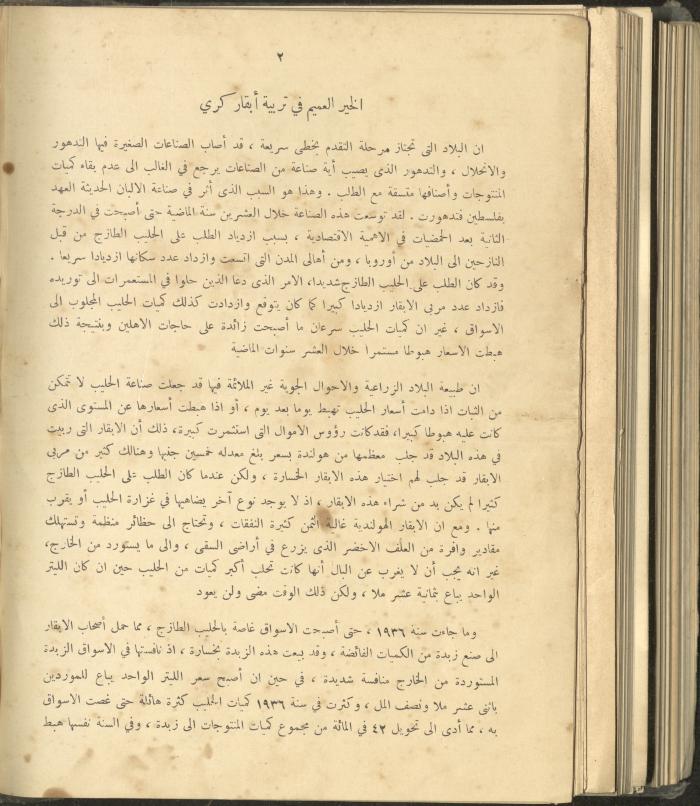 ٢
الخير العميم في تربية أبقار كري
ان البلاد التى تجتاز مرحلة التقدم بخطى سريعة ، قد أصاب الصناعات الصغيرة فيها التدهور
والانحلال ، والتدهور الذى يصيب أية صناعة من الصناعات يرجع في الغالب الى عدم بقاء كميات
المنتوجات وأصنافها متسقة مع الطلب . وهذا هو السبب الذى أثر في صناعة الالبان الحديثة العهد
بفلسطين فتدهورت . لقد توسعت هذه الصناعة خلال العشرين سنة الماضية حتى أصبحت في الدرجة
الثانية بعد الحمضيات في الاهمية الاقتصادية ، بسبب ازدياد الطلب على الحليب الطازج من قبل
النازحين الى البلاد من أوروبا ، ومن أهالى المدن التى اتسعت وازداد عدد سكانها ازديادا سريعا .
وقد كان الطلب على الحليب الطازج شديدا، الامر الذى دعا الذين حلوا في المستعمرات الى توريده
فازداد عدد مربى الابقار ازديادا كبيرا كما كان يتوقع وازدادت كذلك كميات الحليب المجلوب الى
الاسواق ، غير ان كميات الحليب سرعان ما أصبحت زائدة على حاجات الاهلين وبنتيجة ذلك
هبطت الاسعار هبوطا مستمرا خلال العشر سنوات الماضية
ان طبيعة البلاد الزراعية والاحوال الجوية غير الملائمة فيها قد جعلت صناعة الحليب لا تتمكن
من الثبات اذا دامت أسعار الحليب تهبط يوما بعد يوم ، أو اذا هبطت أسعارها عن المستوى الذى
كانت عليه هبوطا كبيرا، فقد كانت رؤوس الاموال التى استثمرت كبيرة، ذلك أن الابقار التى ربيت
في هذه البلاد قد جلب معظمها من هولندة بسعر بلغ معدله خمسين جنيها وهنالك كثير من مربى
الابقار قد جلب لهم اختبار هذه الابقار الخسارة ، ولكن عندما كان الطلب على الحليب الطازج
كثيرا لم يكن بد من شراء هذه الابقار ، اذ لا يوجد نوع آخر يضاهيها في غزارة الحليب أو يقرب
منها . ومع ان الابقار الهولندية غالية الثمن كثيرة النفقات ، وتحتاج الى حظائر منظمة وتستهلك
مقادير وافرة من العلف الاخضر الذى يزرع في أراضى السقى ، والى ما يستورد من الخارج،
غير انه يجب أن لا يغرب عن البال أنها كانت تحلب أكبر كميات من الحليب حين ان كان الليتر
الواحد يباع بثمانية عشر ملا ، ولكن ذلك الوقت مضى ولن يعود
وما جاءت سنة ١٩٣٦ ، حتى أصبحت الاسواق غاصة بالحليب الطازج ، مما حمل أصحاب الابقار
الى صنع زبدة من الكميات الفائضة ، وقد بيعت هذه الزبدة بخسارة ، اذ نافستها في الاسواق الزبدة
المستوردة من الخارج منافسة شديدة ، في حين ان أصبح سعر الليتر الواحد يباع للموردين
باثنى عشر ملا ونصف المل ، وكثرت في سنة ١٩٣٦ كميات الحليب كثرة هائلة حتى غصت الاسواق
به ، مما أدى الى تحويل ٤٢ في المائة من مجموع كميات المنتوجات الى زبدة ، وفي السنة نفسها هبط